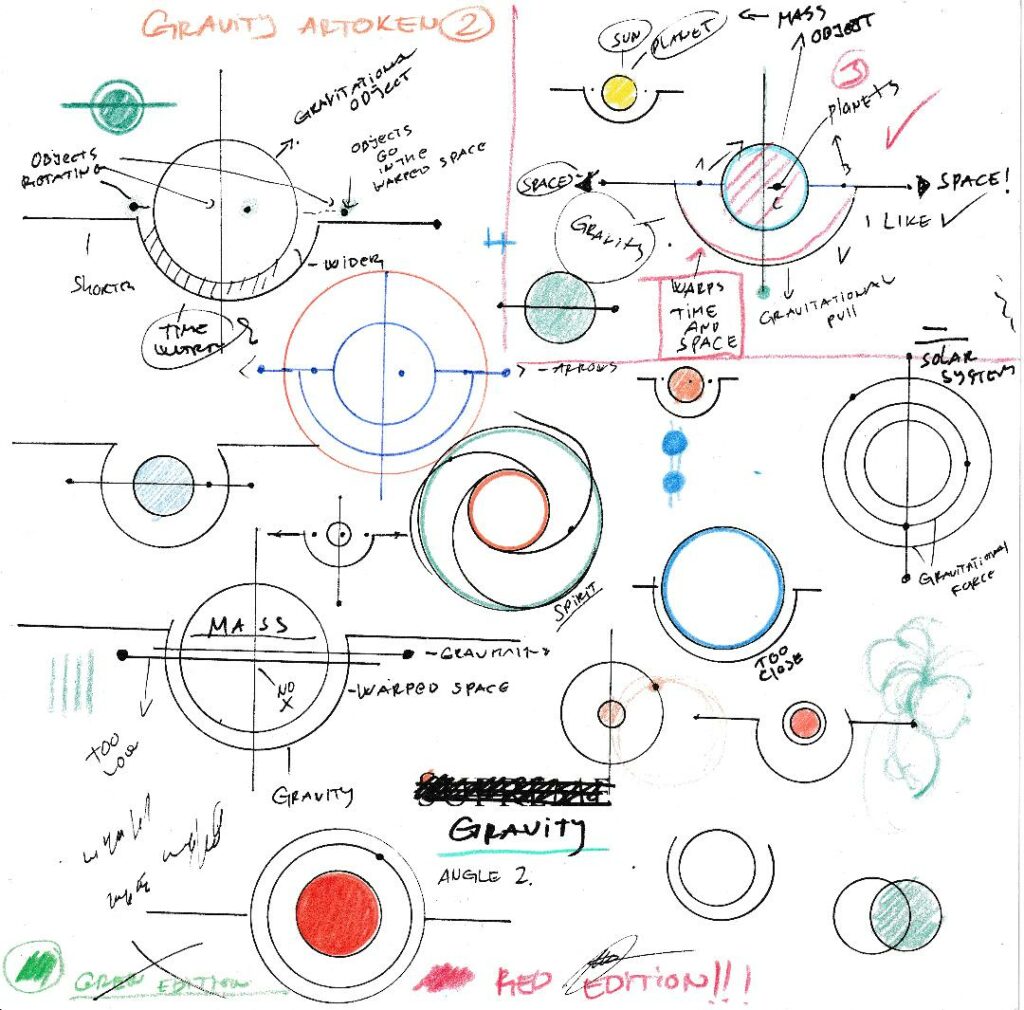 GRAVITY ARTOKEN 2
SUN
PLANET
MASS
OBJECT
3
GRAVITATIONAL
OBJECT
PLANETS
OBJECTS
ROTATING
OBJECTS
GO
IN THE
WARPED SPACE
A
B
C
SPACE
SPACE!
I LIKE
GRAVITY
4
SHORTER
- WIDER
TIME
WARPS
TIME
AND
SPACE
GRAVITATIONAL
PULL
- ARROWS
SOLAR
SYSTEM
GRAVITATIONAL
FORCE
SPIRIT
MASS
- WARPED SPACE
NO
X
TOO
CLOSE
TOO
LOW
GRAVITY
GRAVITY
ANGLE 2.
GREEN EDITION
RED EDITION!!!